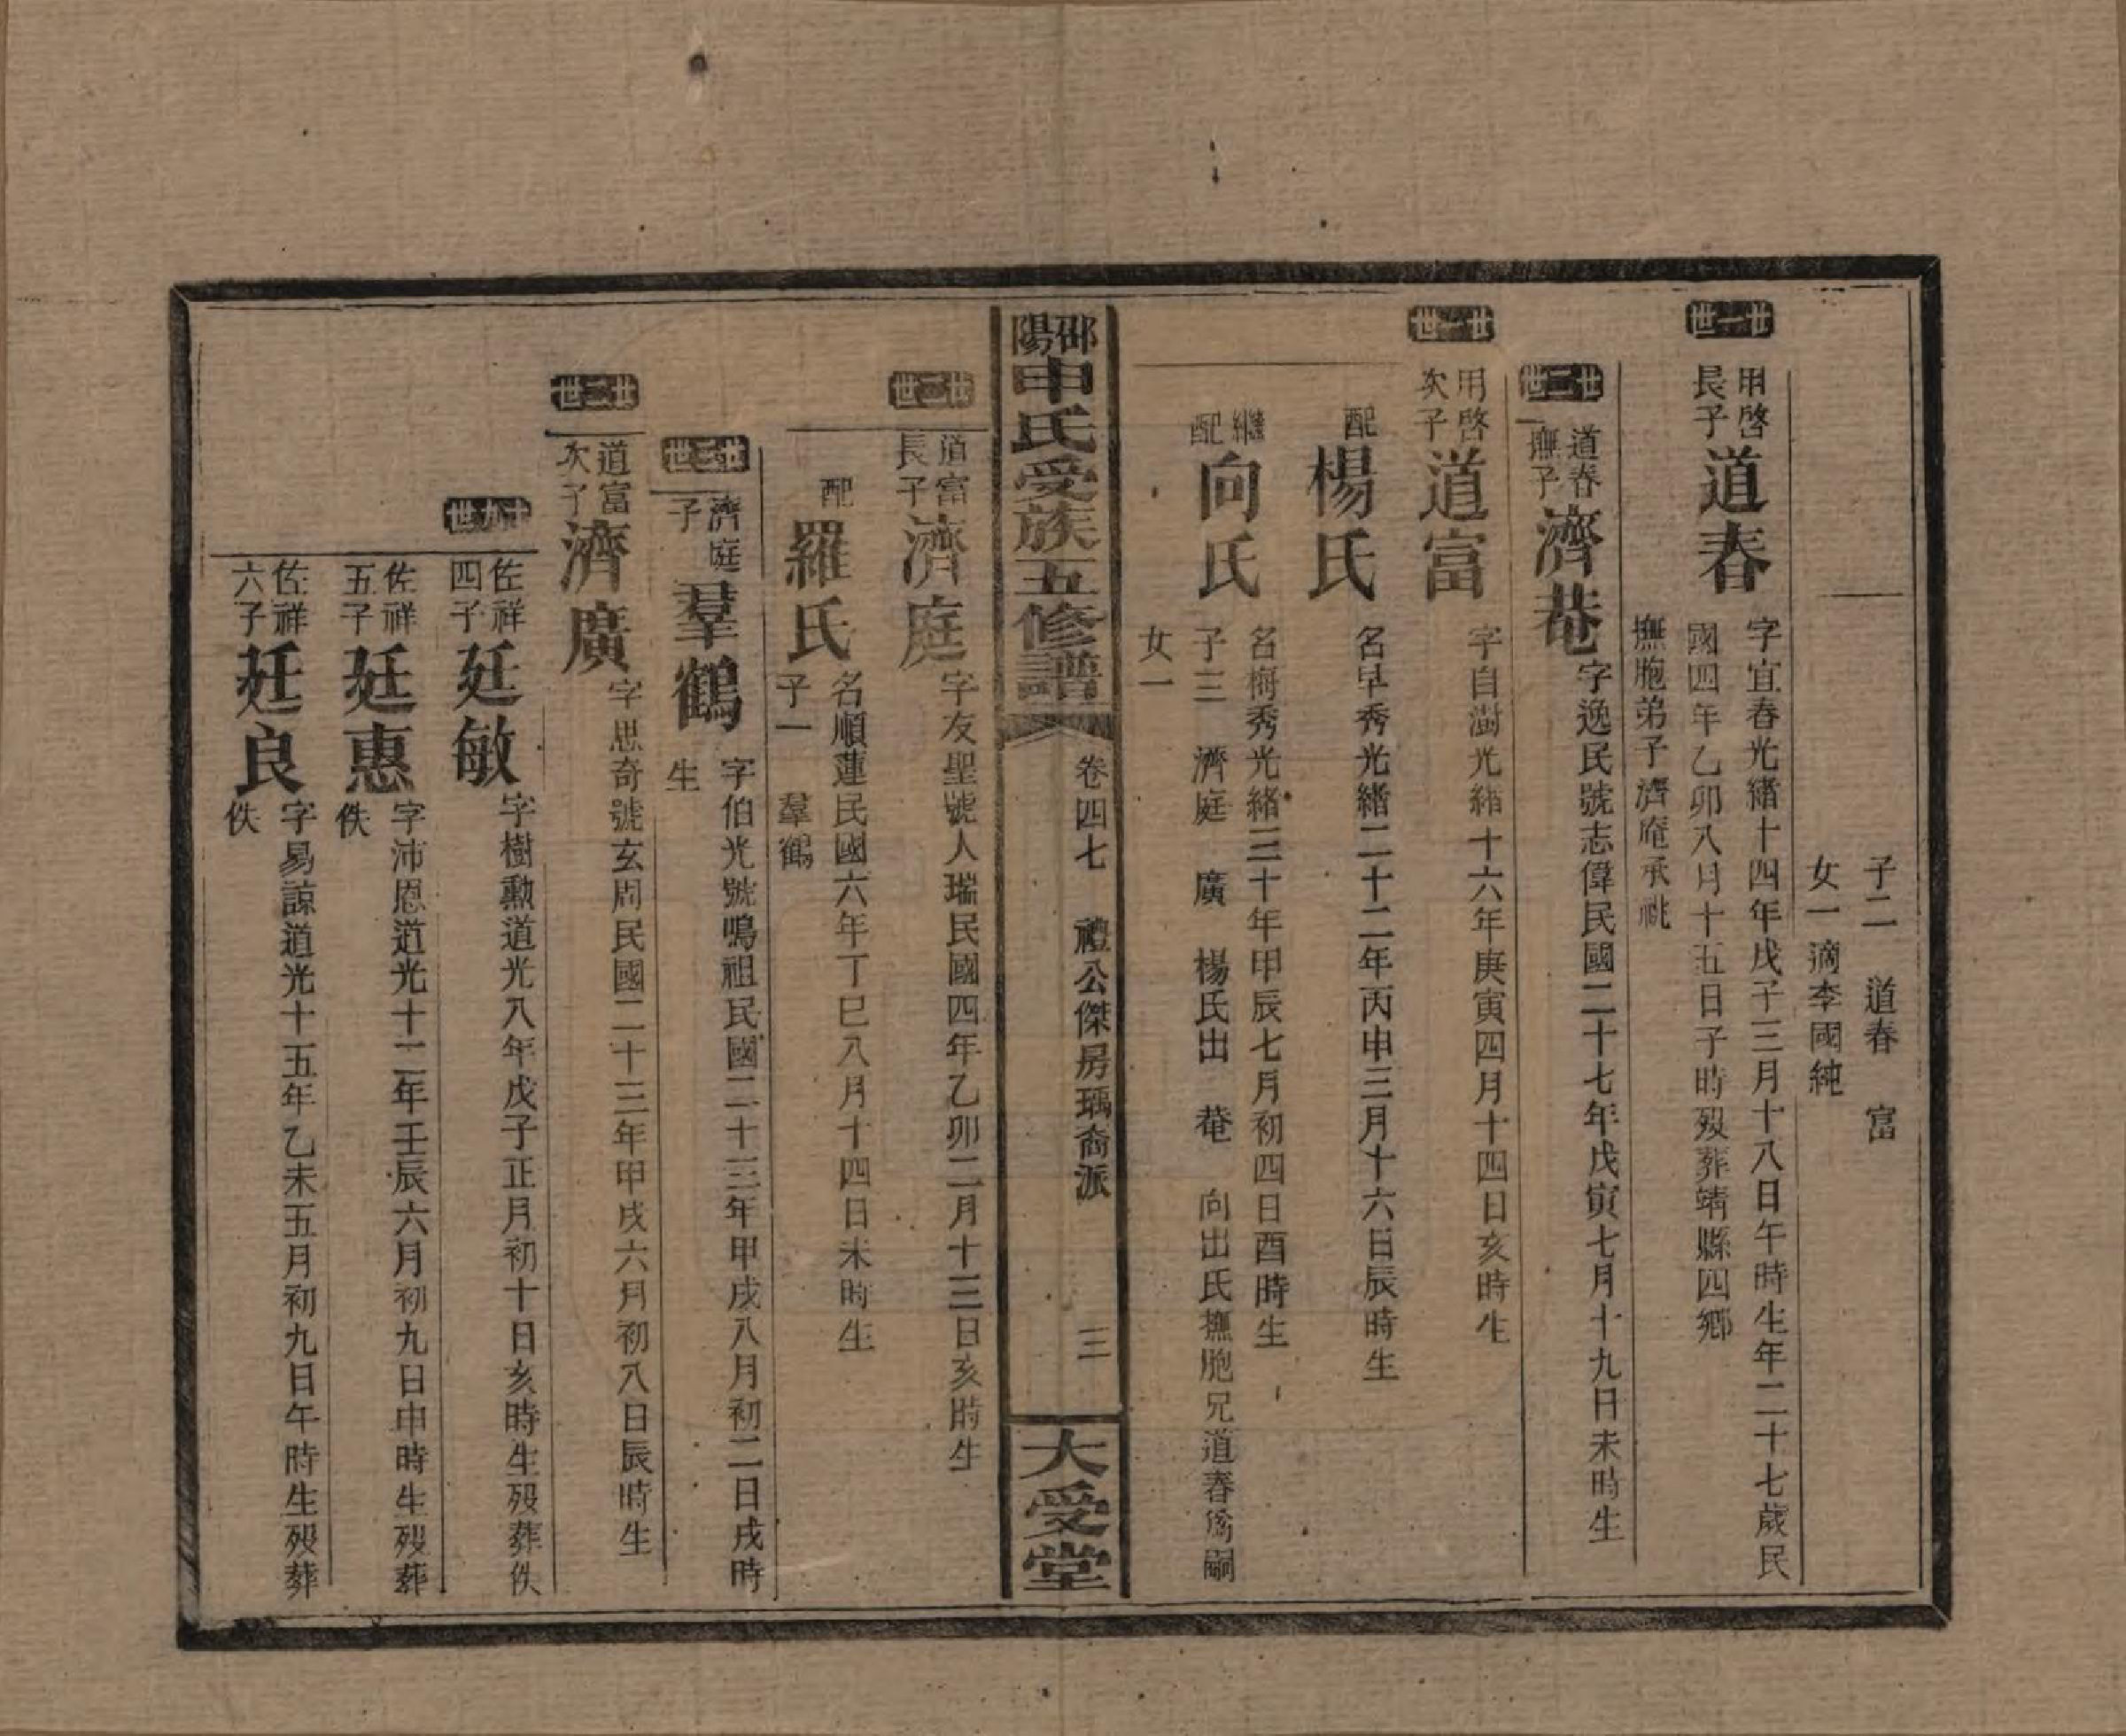 子二　道春　富
女一適李國純
廿一世
用啓長子
道春
字宜春光緖十四年戊子三月十八日午時生年二十七歲民
國四年乙卯八月十五日子時歿葬靖縣四鄉
撫胞弟子濟庵承祧
廿二世
道春撫子
濟菴
字逸民號志偉民國二十七年戊寅七月十九日未時生
廿一世
用啓次子
道富
字自澍光緒十六年庚寅四月十四日亥時生
配
楊氏
名早秀光緖二十二年丙申三月十六日辰時生
繼配
向氏
名樹秀光緒三十年甲辰七月初四日酉時生
子三　濟庭　廣　楊氏出　菴　向出氏撫胞兄道春爲嗣
女一
邵陽申氏受族五修譜
卷四七　禮公傑房瑀裔派　三
大受堂
廿二世
道富長子
濟庭
字友聖號人瑞民國四年乙卯二月十三日亥時生
配
羅氏
名順蓮民國六年丁巳八月十四日未時生
子一　羣鶴
廿三世
濟庭子
羣鶴
字伯光號鳴祖民國二十三年甲戌八月初二日戌時
生
廿二世
道富次子
濟廣
字思奇號玄周民國二十三年甲戌六月初八日辰時生
十九世
佐祥四子
廷敏
字樹勳道光八年戊子正月初十日亥時生歿葬佚
佐祥五子
廷惠
字沛恩道光十二年壬辰六月初九日申時生歿葬
佚
佐祥六子
廷良
字易諒道光十五年乙未五月初九日午時生歿葬
佚